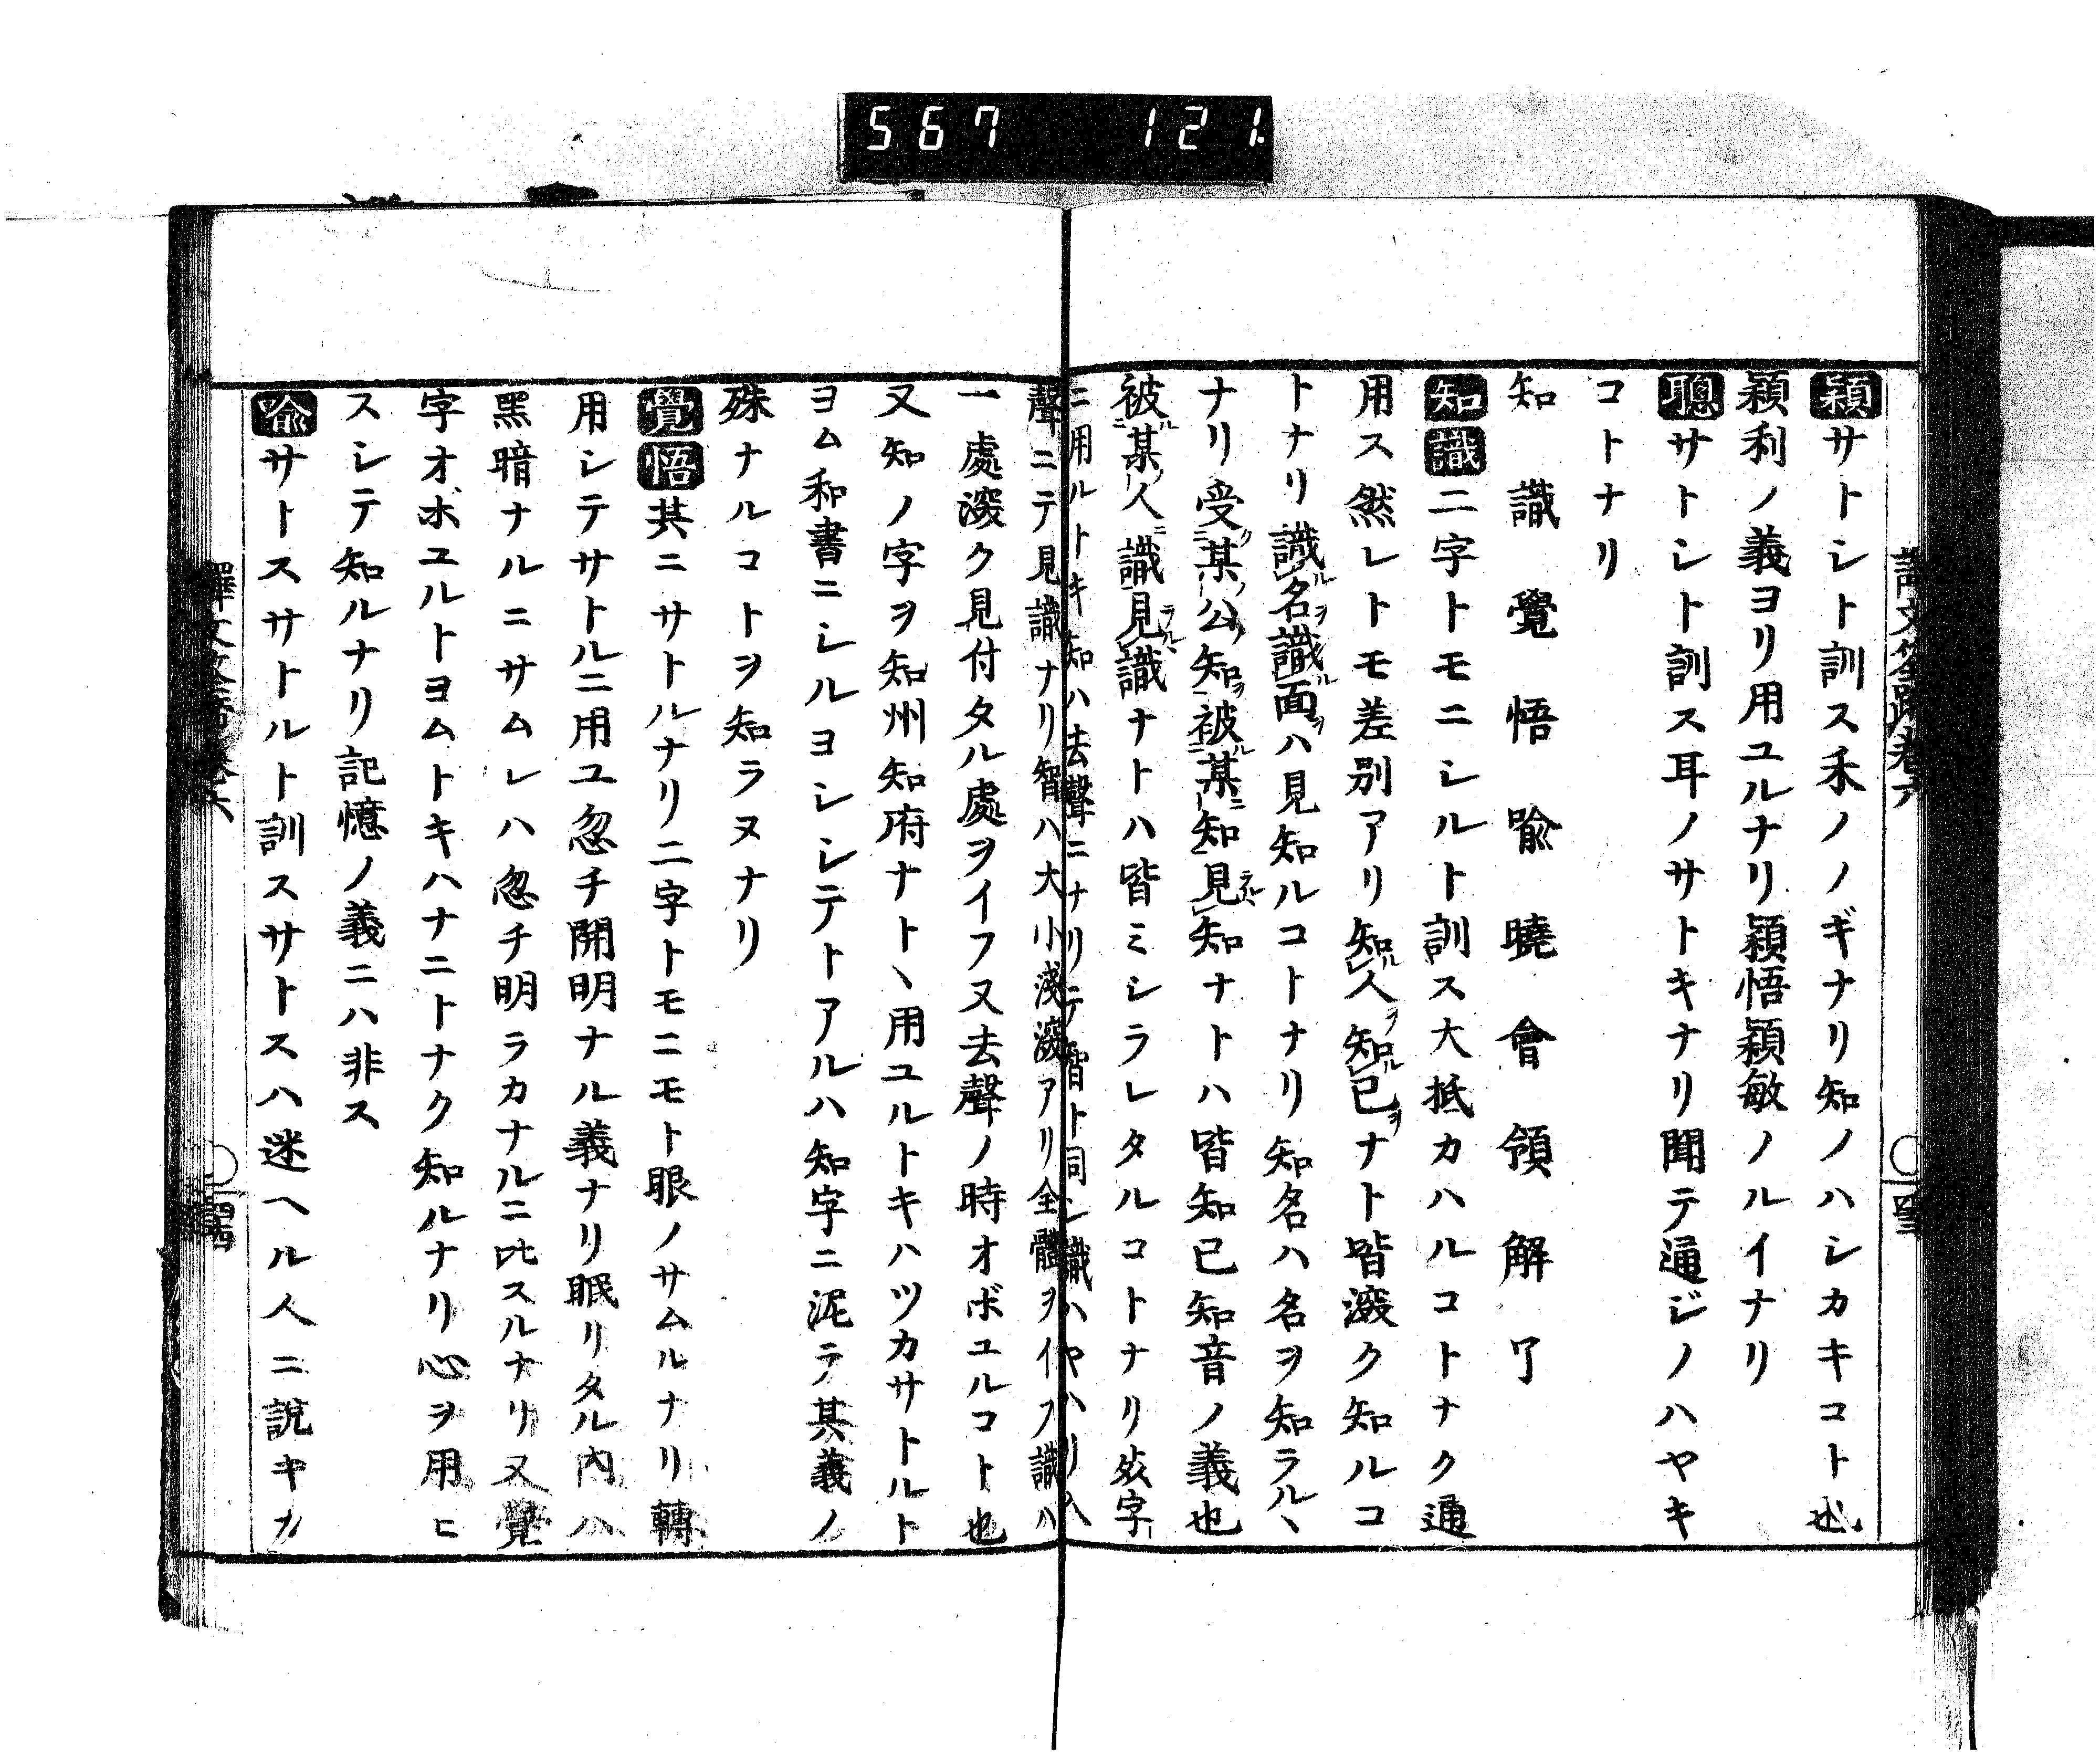 567 121
穎サトシト訓ス禾ノノギナリ知ノハシカキコト也
穎利ノ義ヨリ用ユルナリ穎悟穎敏ノルイナリ
聰サトシト訓ス耳ノサトキナリ聞テ通ジノハヤキ
コトナリ
知識覺悟喩曉會領解了
知識二字トモニシルト訓ス大抵カハルコトナク通
用ス然レトモ差別アリ知ル人ヲ知ル已ヲナト皆深ク知ルコ
トナリ識ル名ヲ識ル面ヲハ見知ルコトナリ知名ハ名ヲ知ラルヽ
ナリ受ク某ノ公ノ知ヲ被ル某ニ知見ラル知ナトハ皆知已知音ノ義也
被ル某ノ人ニ識見ラルヽ識ナトハ皆ミシラレタルコトナリ此字
ニ用ルトキ知ハ去聲ニナリテ智ト同シ識ハヤハリ入
聲ニテ見識ナリ智ハ大小淺深アリ全體ヲイフ識ハ
一處深ク見付タル處ヲイフ又去聲ノ時オボユルコト也
又知ノ字ヲ知州知府ナトヽ用ユルトキハツカサトルト
ヨム和書ニシルヨシシテトアルハ知字ニ泥テ其義ノ
殊ナルコトヲ知ラヌナリ
覺悟共ニサトルナリ二字トモニモト眼ノサムルナリ轉
用シテサトルニ用ユ忽チ開明ナル義ナリ眠リタル内ハ
黑暗ナルニサムレハ忽チ明ラカナルニ比スルナリ又覺
字オホユルトヨムトキハナニトナク知ルナリ心ヲ用ヒ
スシテ知ルナリ記憶ノ義ニハ非ス
喩サトスサトルト訓スサトスハ迷ヘル人ニ說キカ